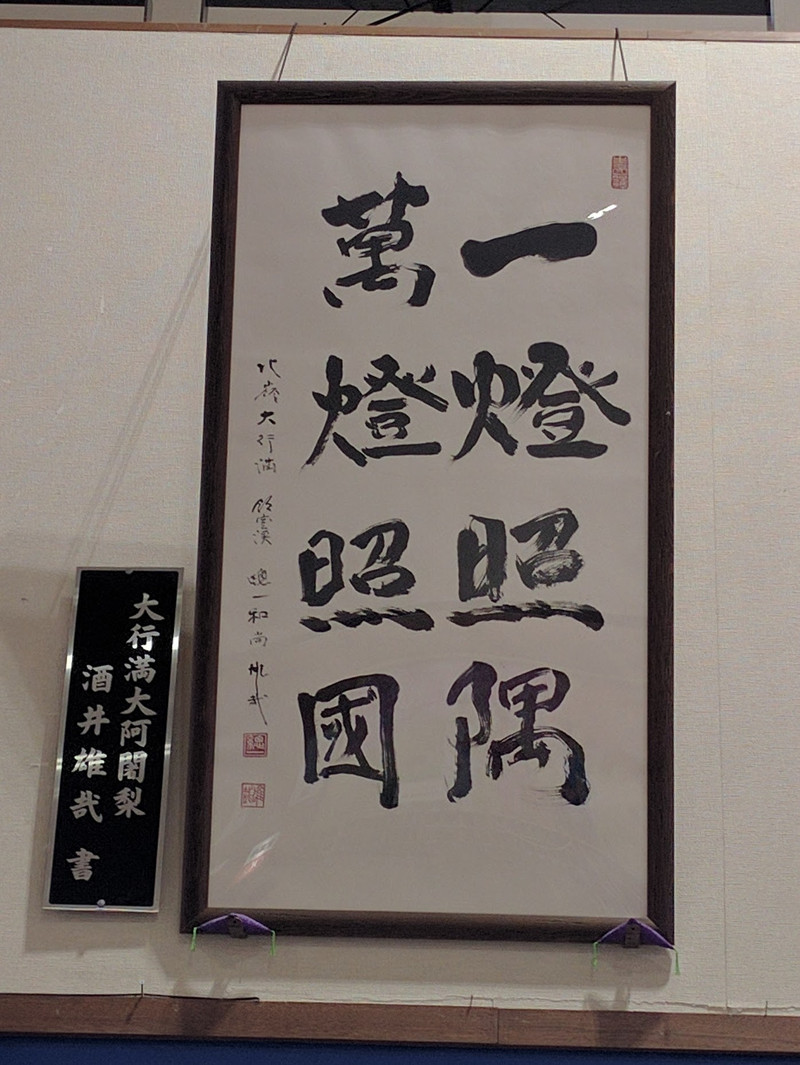 一燈照隅
萬燈照國
北嶺大行満 飯室谷 遊一和尚 雄哉
大行満大阿闍梨
酒井雄哉 書